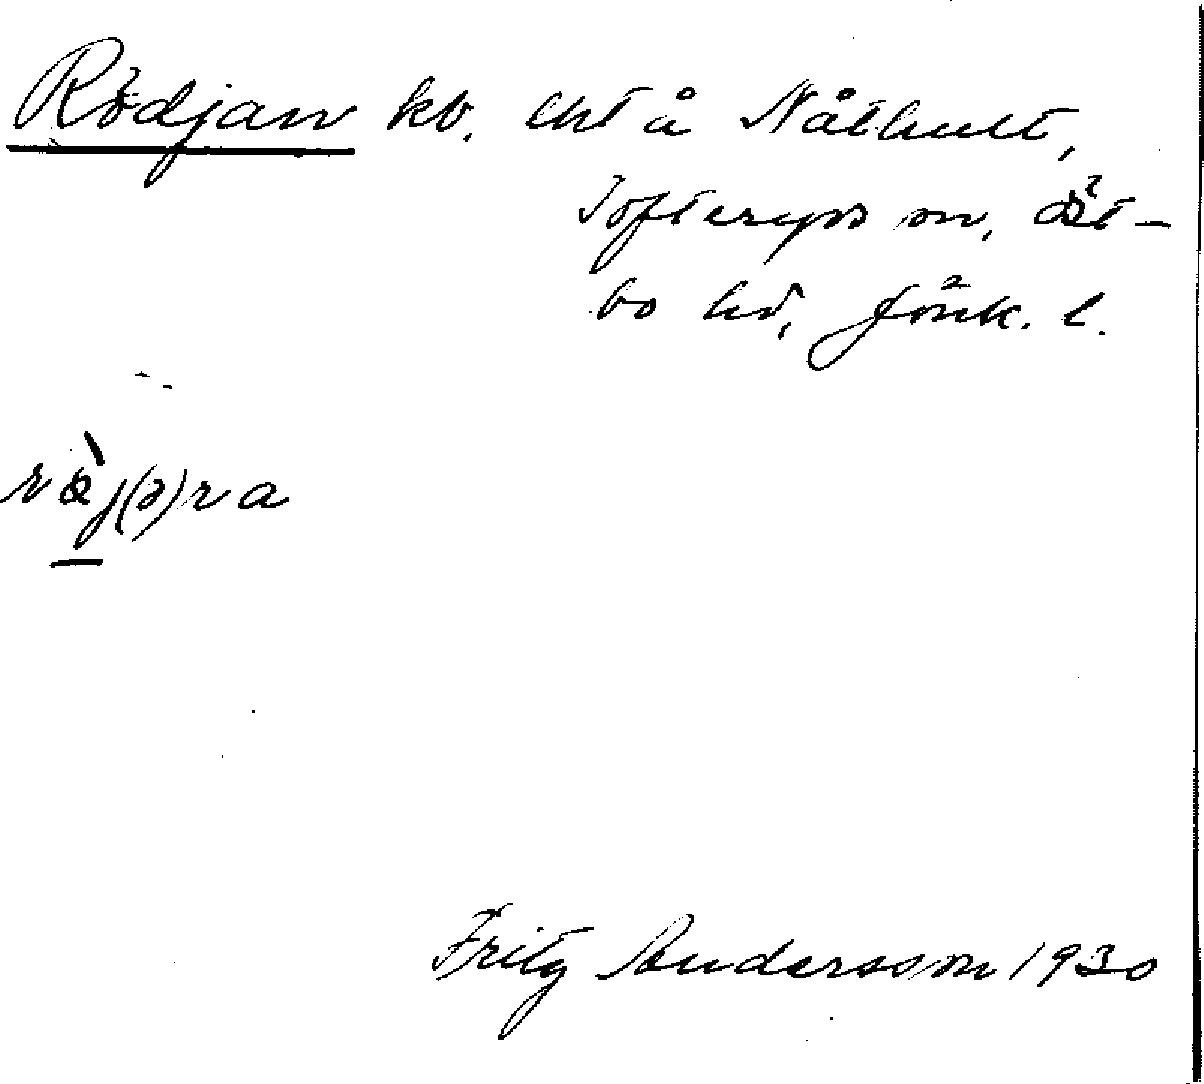 Rödjan kb. lht å Nåthult,
Tofteryds sn, Öst-
bo hd, Jönk. l.
rö̀j(ə)ra
Fritz Andersson 1930